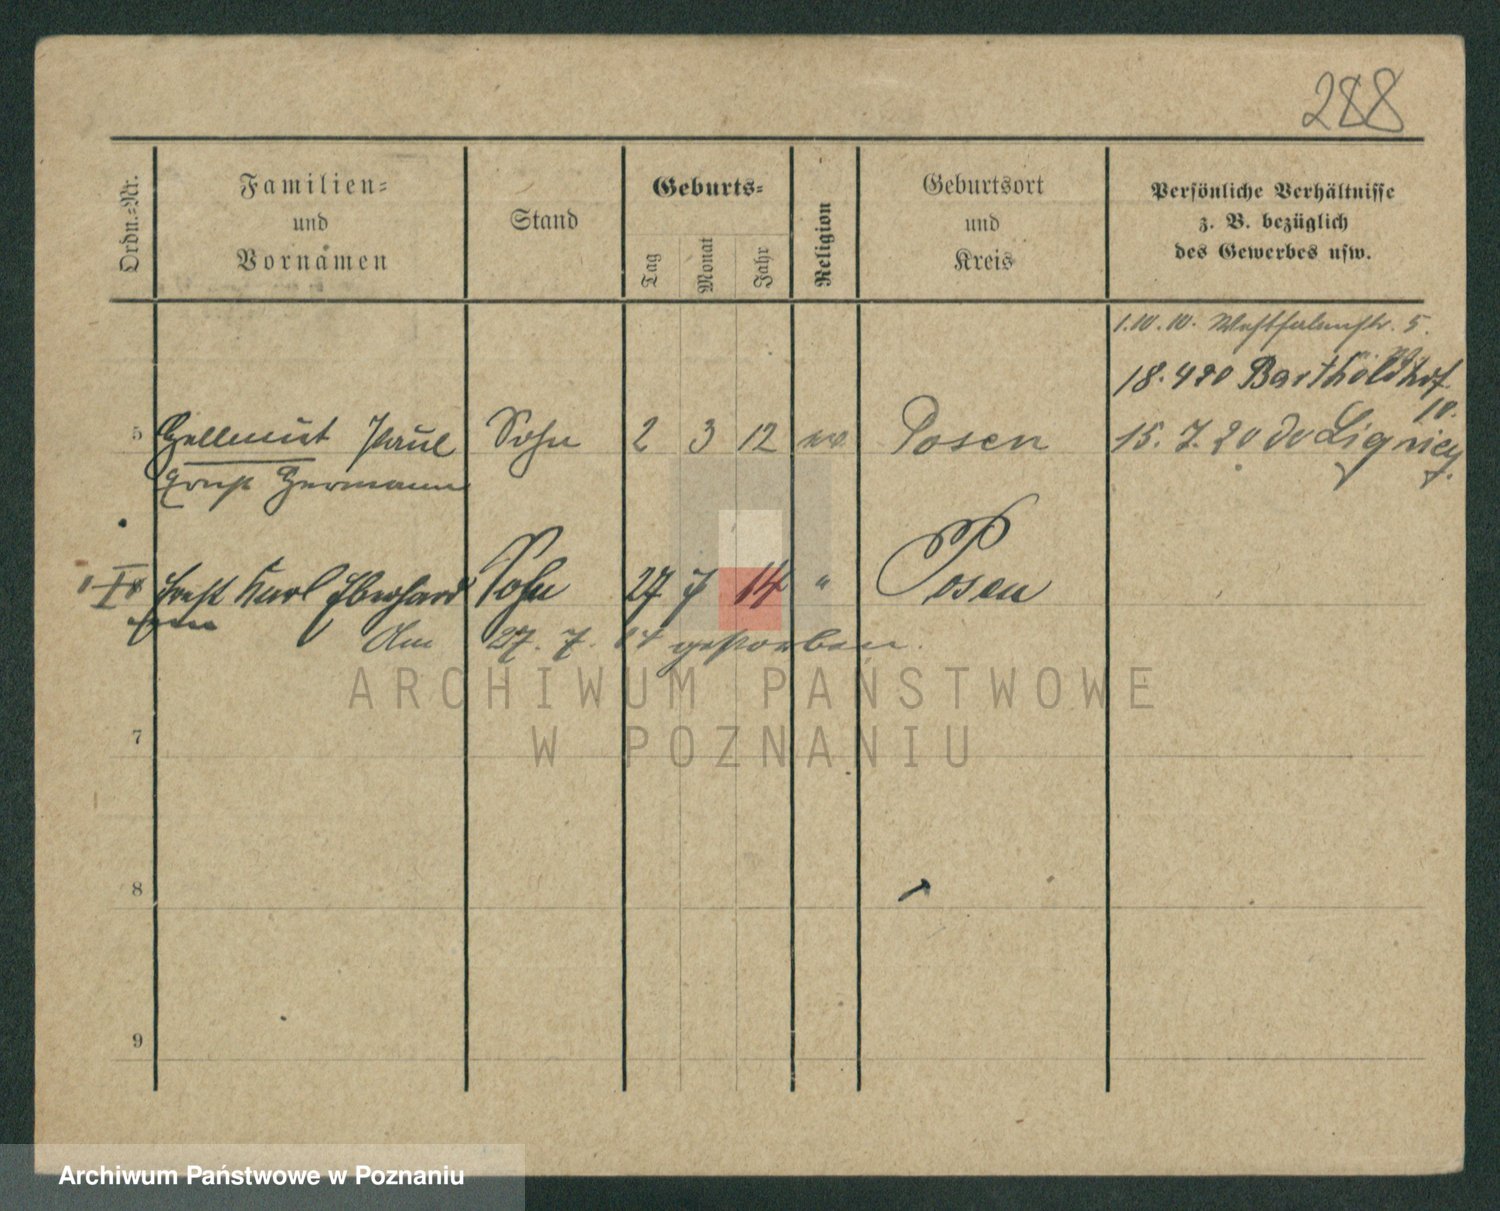 288
Ordn.-Nr.
Familien-
und
Vornamen
Stand
Geburts-
Tag
Monat
Jahr
Religion
Geburtsort
und
Kreis
Persönliche Verhältnisse
z. B. bezüglich
des Gewerbes usw.
1.10.10. Westfalenstr. 5.
18.4 20 Bartholdshof
10.
5 Hellmut Paul Sohn 2 3 12 ev. Posen 15. 7. 20 Liegnitz
Ernst Hermann
Ernst Karl Eberhard Sohn 27 7 14 " Posen
Am 27. 7. 14 gestorben.
ARCHIWUM PAŃSTWOWE
W POZNANIU
7
8
9
Archiwum Państwowe w Poznaniu